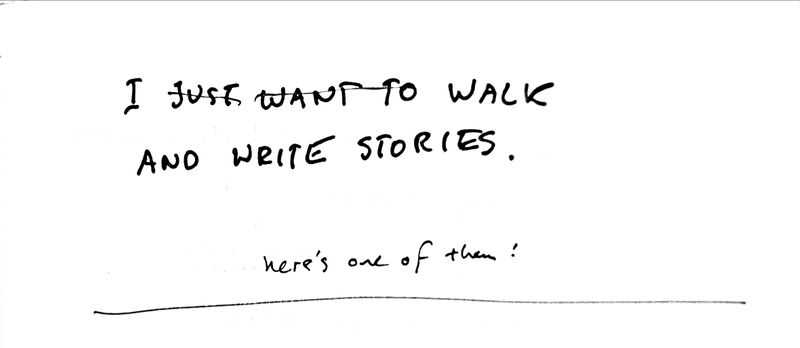 I JUST WANT TO WALK
AND WRITE STORIES.
here's one of them!